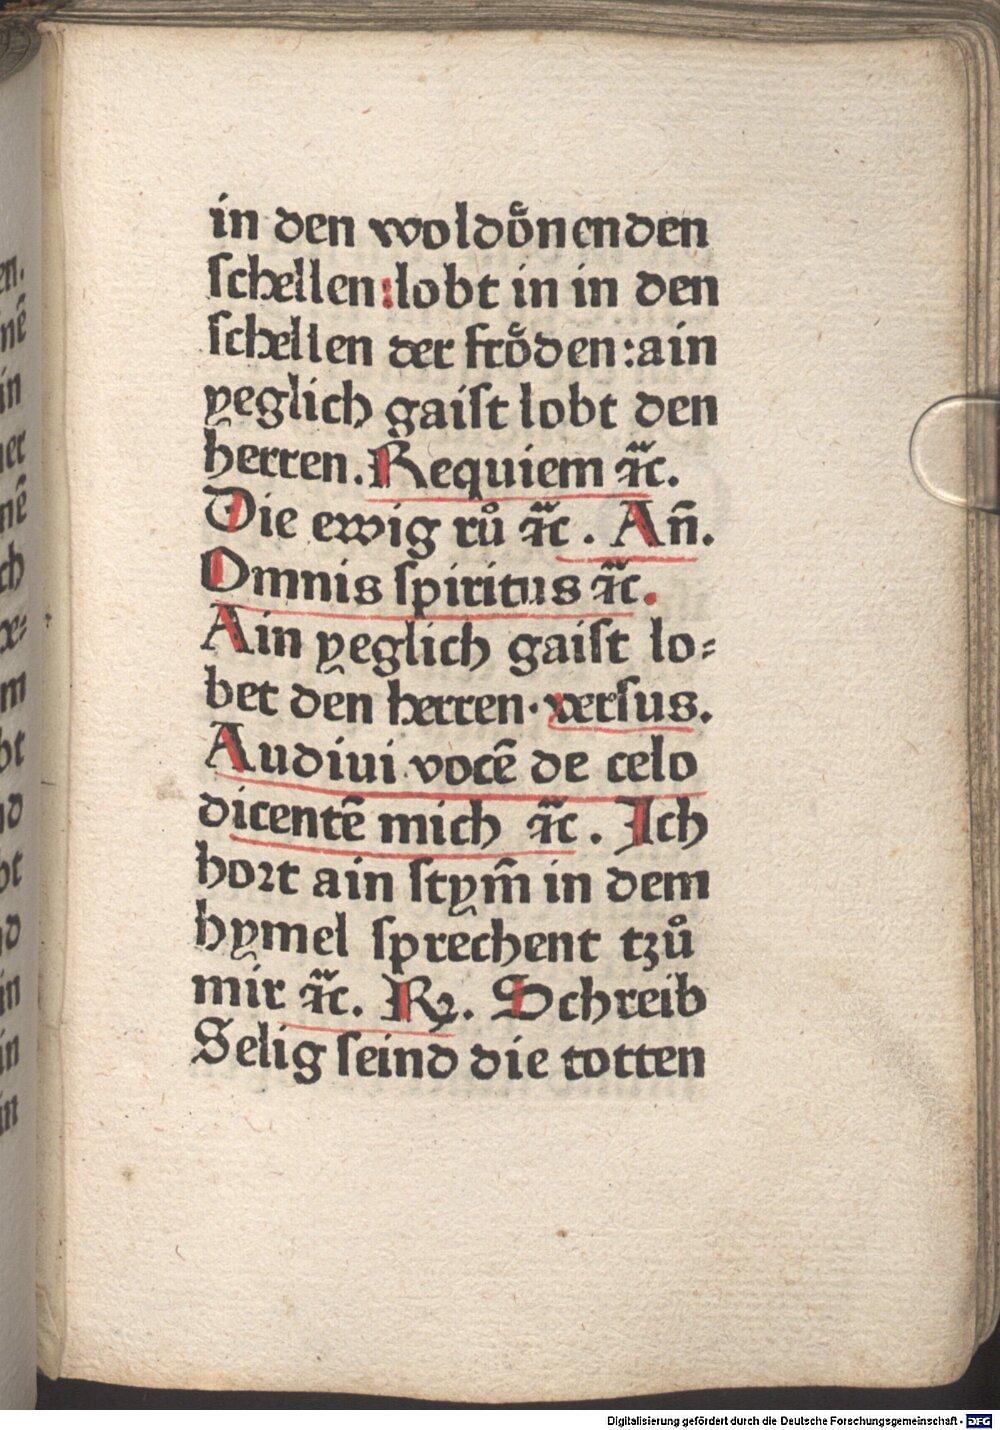 in den woldoͤnenden
ſchellen:lobt in in den
ſchellen der froͤden:ain
yeglich gaiſt lobt den
herren. Requiem ⁊c̃.
Die ewig rů ⁊c̃. An̄.
Omnis ſpiritus ⁊c̃.
Ain yeglich gaiſt lo⸗
bet den herren· verſus.
Audiui vocē de celo
dicentē mich ⁊c̃. Ich
hoꝛt ain ſtym̄ in dem
hymel ſprechent tzů
mir ⁊c̃. ℞. Schreib
Selig ſeind die totten
Digitalisierung gefördert durch die Deutsche Forschungsgemeinschaft - DFG